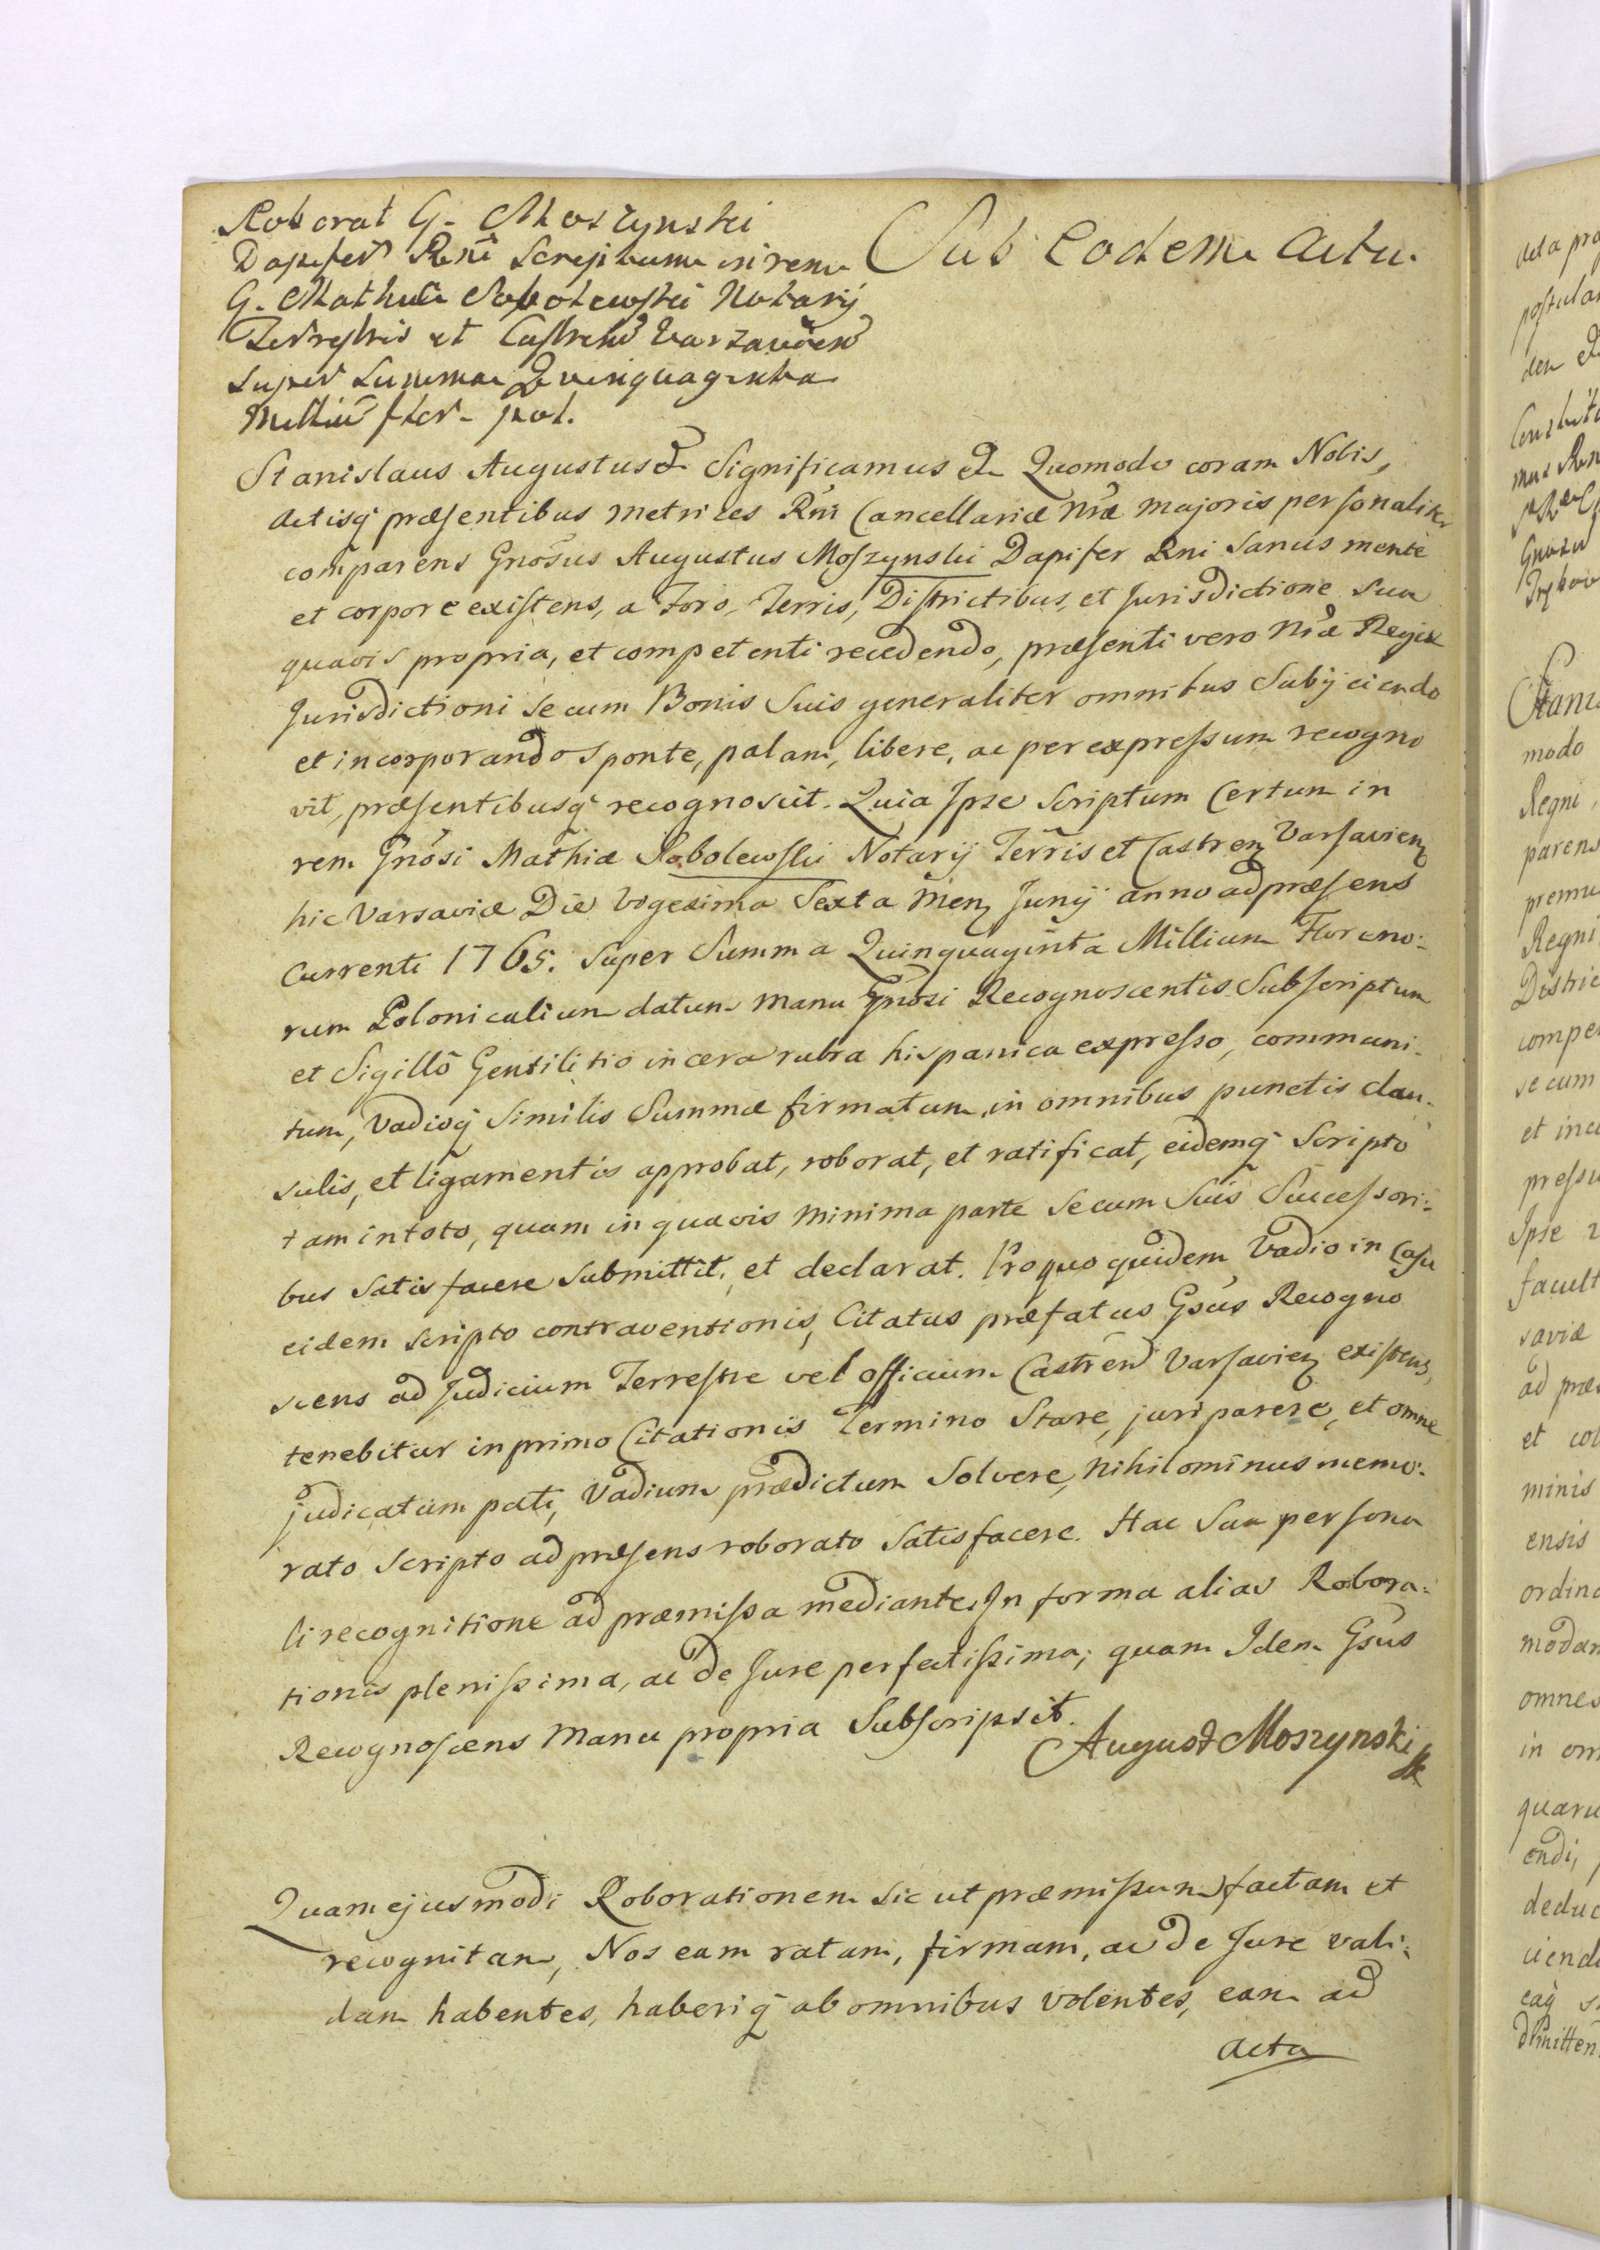 Roborat G. Moszynski
Dapifer Rni Scriptum in rem
G. Mathiæ Sobolewski Notarij
Terrestris et Castren Varzavien
super Summa Quinquaginta
Milliu flor. pol.
Sub Eodem Actu.
Stanislaus Augustus & Significamus & Quomodo coram Nobis,
Actisq præsentibus Metrices Rni Cancellariæ Nræ Majoris personaliter
comparens Gnosus Augustus Moszynski Dapifer Rni Sanus mente
et corpore existens, a Foro, Terris, Districtibus, et Jurisdictione Sua
quavis propria, et competenti recedendo, præsenti vero Nræ Regiæ
Jurisdictioni se cum Bonis Suis generaliter omnibus Subijciendo
et incorporando sponte, palam, libere, ac per expressum recogno
vit, præsentibusq recognoscit. Quia Ipse Scriptum Certum in
rem Gnosi Mathiæ Sobolewski Notarij Terris et Castren Varsavien
hic Varsaviæ Die Vigesima Sexta Men Junij anno ad præsens
Currenti 1765. Super Summa Quinquaginta Millium Floreno-
rum Polonicalium datum manu Gnosi Recognoscentis Subscriptum
et Sigillo Gentilitio in cera rubra hispanica expresso, communi-
tum, Vadioq Similis Summæ firmatum, in omnibus punctis clau-
sulis, et ligamentis approbat, roborat, et ratificat, eidemq Scripto
tam in toto, quam in quavis minima parte Se cum Suis Successori-
bus Satis facere Submittit, et declarat. Pro quo quidem Vadio in Casu
eidem Scripto contraventionis, Citatus præfatus Gsus Recogno
scens ad Judicium Terrestre vel officium Castren Varsavien existens,
tenebitur in primo Citationis Termino Stare, juri parere, et omne
judicatum pati, Vadium prædictum Solvere, nihilominus memo-
rato Scripto ad præsens roborato Satisfacere. Hac Sua persona
li recognitione ad præmissa mediante. In forma alias Robora-
tionis plenissima, ac de Jure perfectissima; quam Idem Gsus
Recognoscens Manu propria Subscripsit.
August Moszynski
Quam ejusmodi Roborationem sic ut præmissum factam et
recognitam, Nos eam ratam, firmam, ac de Jure vali-
dam habentes, haberiq ab omnibus volentes, eam ad
acta